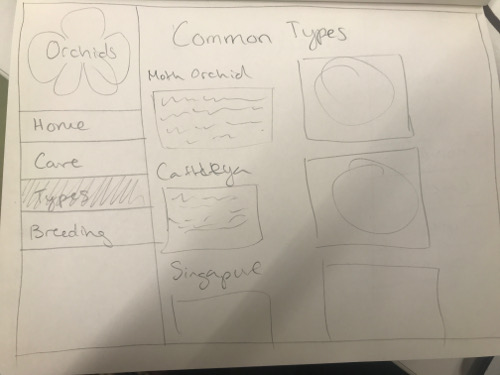 Orchids
Home
Care
Types
Breeding
Common Types
Moth Orchid
Singapure